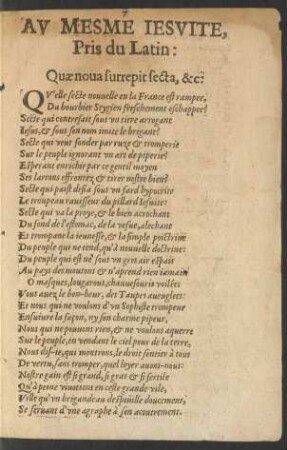 AV MESME IESVITE,
Pris du Latin:
Quæ noua surrepit secta, &c?
QV'elle secte nouuelle en la France est rampee,
Du bourbier Stygien freschement eschappee?
Secte qui contrefait sous vn titre arrogant
Iesus, & sous son nom imite le brigant?
Secte qui veut fonder par ruze & tromperie
Sur le peuple ignorant vn art de piperie?
Esperant enrichir par ce gentil moyen
Ses larrons effrontez & tirer nostre bien?
Secte qui paist desia sous vn fard hypocrite
Le troupeau rauisseur du pillard Iesuite?
Secte qui va la proye, & le bien acrochant
Du fond de l'estomac, de la vefue, alechant
Et trompant la ieunesse, & la simple poictrine
Du peuple qui ne tend, qu'à nouuelle doctrine:
Du peuple qui est né sous vn gros air espais
Au pays des moutons & n'aprend rien iamais
O masques, bougarons, chauuesouris voilées
Vous auez le bon-heur, des Taupes aueuglees:
Et nous qui ne voulons d'vn Sophiste trompeur
Ensuiure la façon, ny son charme pipeur,
Nous qui ne pouuons rien, & ne voulons aquerre
Sur le peuple, en vendant le ciel pour de la terre,
Nous dis-ie, qui monstrons, le droit sentier à tous
De vertu, sans tromper, quel loyer auons-nous:
Nostre gain est si grand, si gras & si fertile
Qu'à peine viuottons en ceste grande vile,
Vile qu'vn brigandeau despouille doucement,
Se seruant d'vne agraphe à son acoutrement.